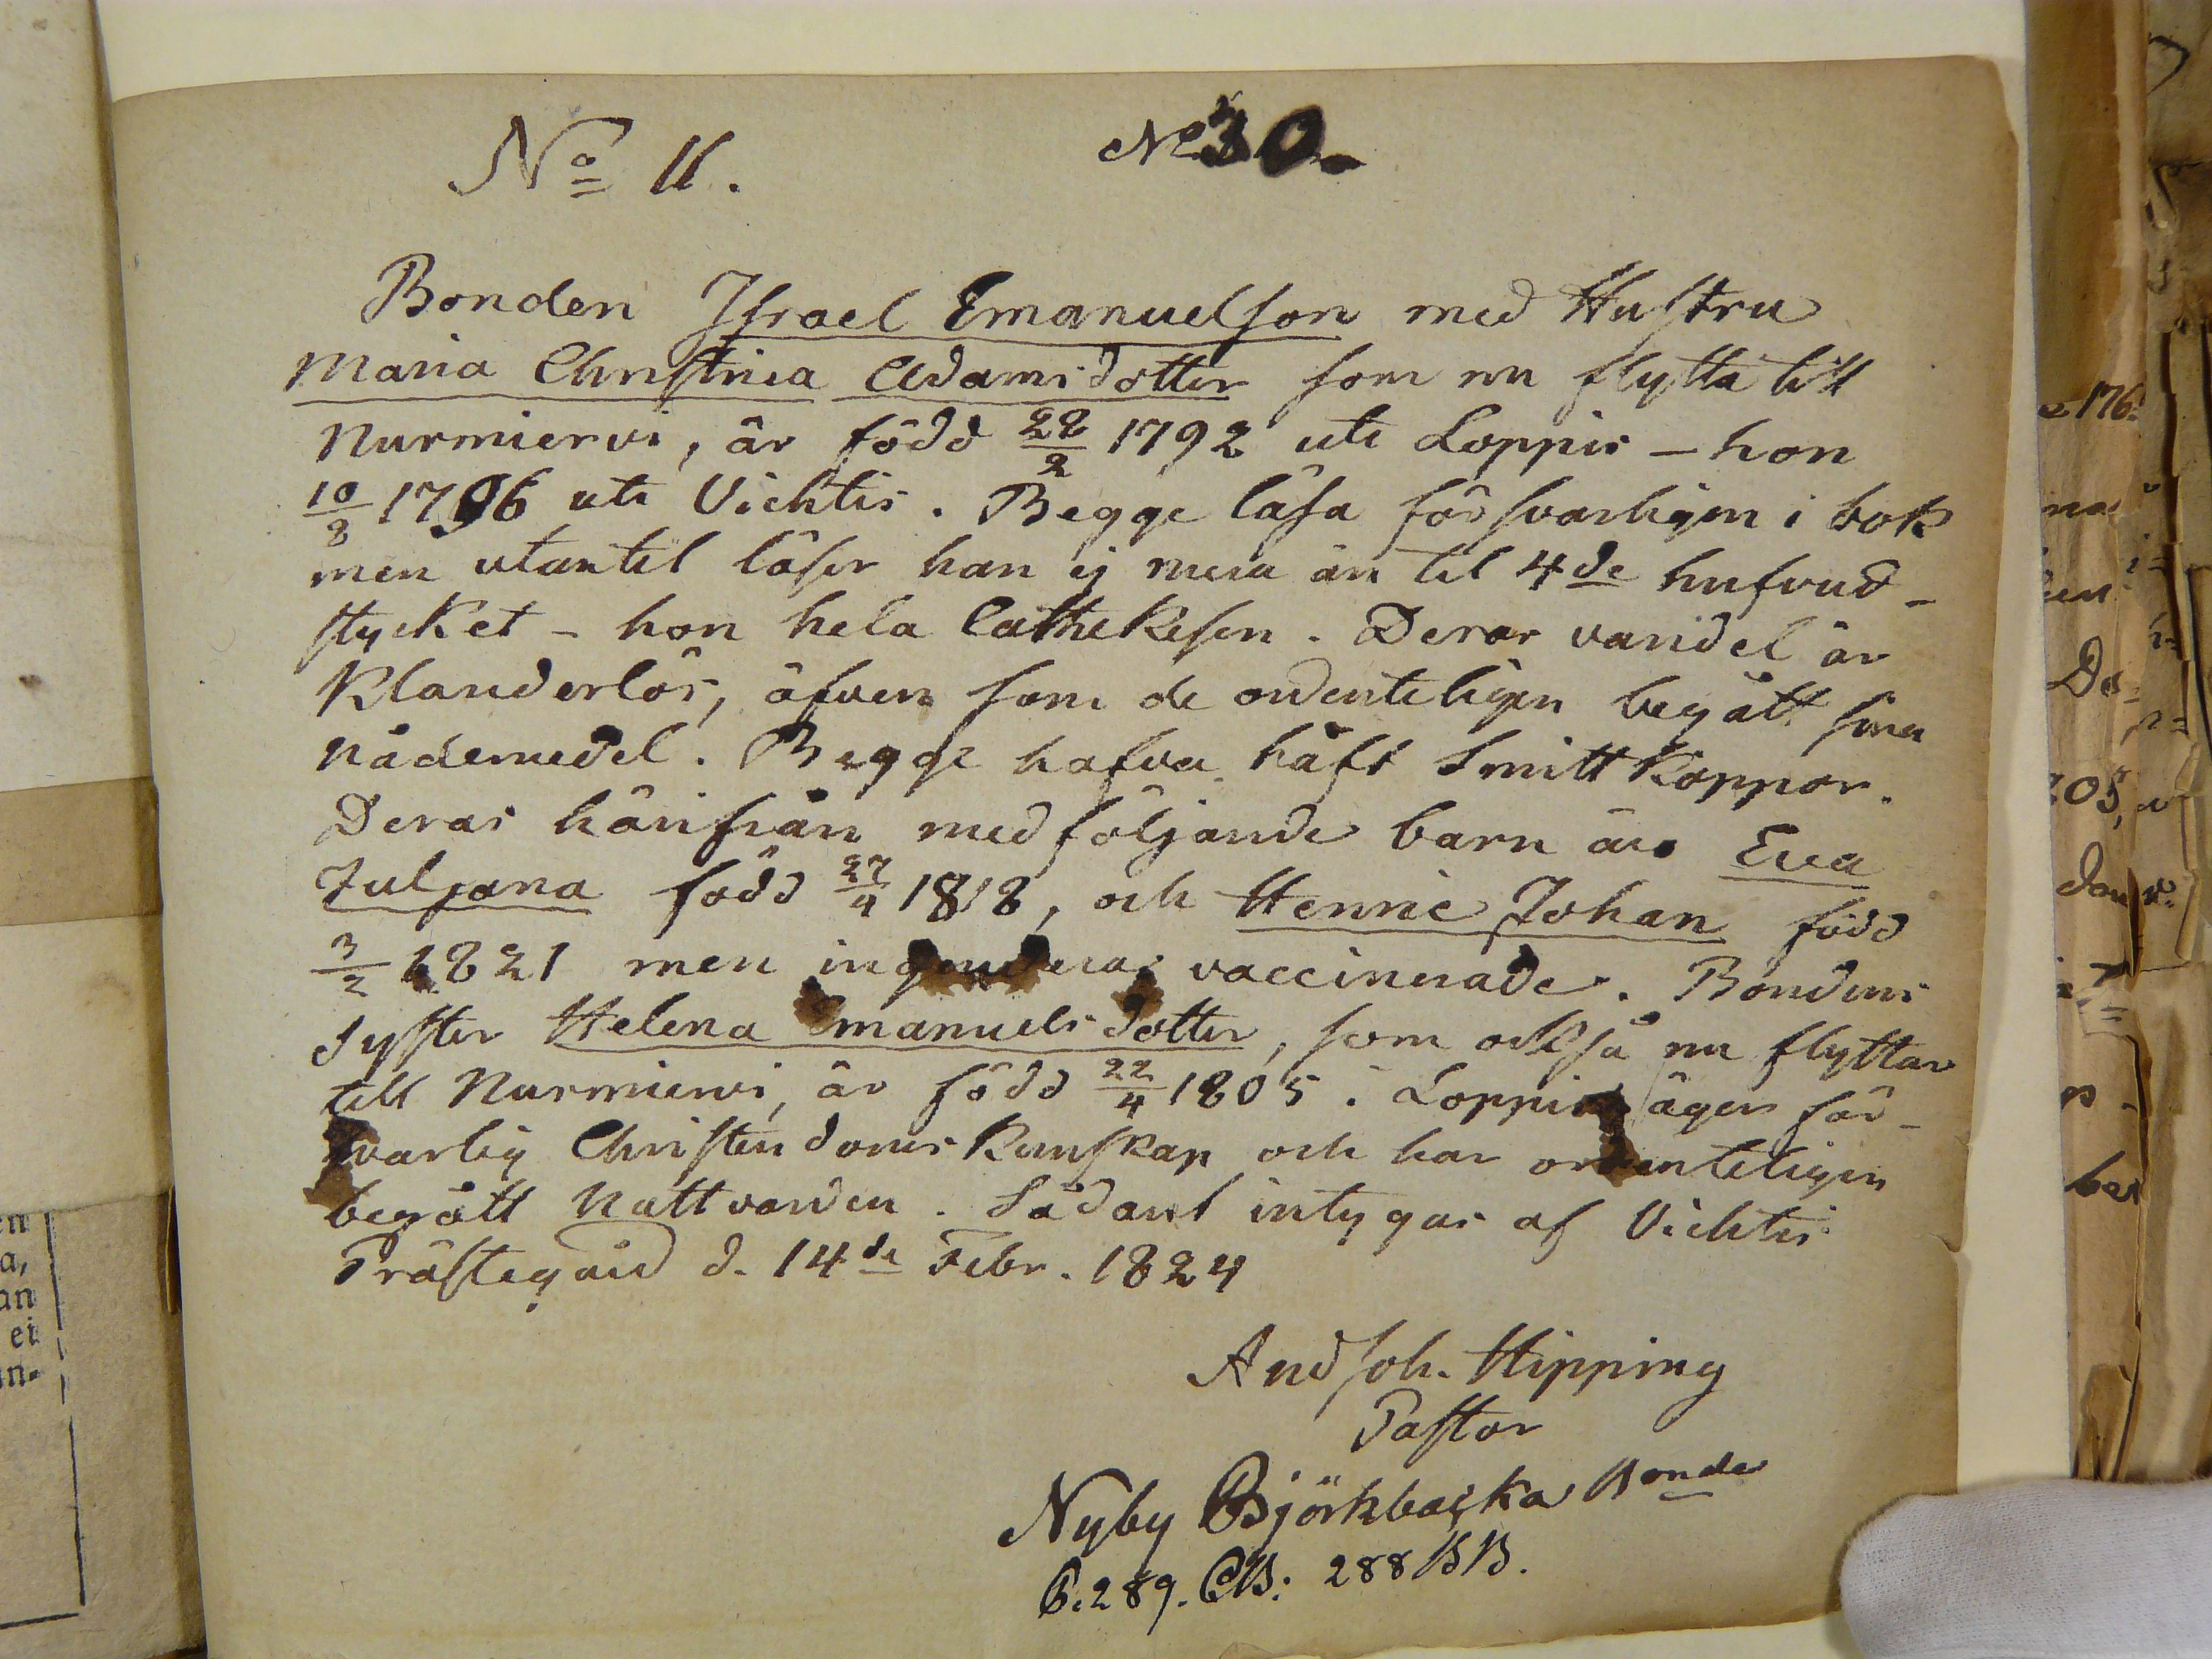 No 11. No 30
Bonden Israel Emanuelson med Hustru
Maria Christina Adamsdotter som nu flytta till
Nurmiervi, är född 22/2 1792 uti Loppis - hon
10/8 1796 uti Vichtis. Begge läsa försvarligen i bok
men utantil läser han ej mera än til 4de hufvud-
stycket - hon hela Cathekesen. Deras vandel är
klanderlös, äfven som de ordenteligen begått sina
nådemedel. Begge hafva haft Smittkoppor.
Deras härifrån medföljande barn äro Eva
Juljana född 27/4 1818, och Henric Johan född
3/2 1821 men ingendera vaccinerade. Bondens
Syster Helena Emanuelsdotter, som också nu flyttar
till Nurmiervi, är född 22/4 1805 i Loppis äger för-
svarlig Christendomskunskap och har ordenteligen
begått Nattvarden. Sådant intygas af Vichtis
Prästegård d. 14de Febr. 1824
And Joh. Hipping
Pastor
Nyby Björkbacka Bonde
P. 289. CB: 288 BB.
en
a,
an
ei
in-
176.
na
De-
205,
dan